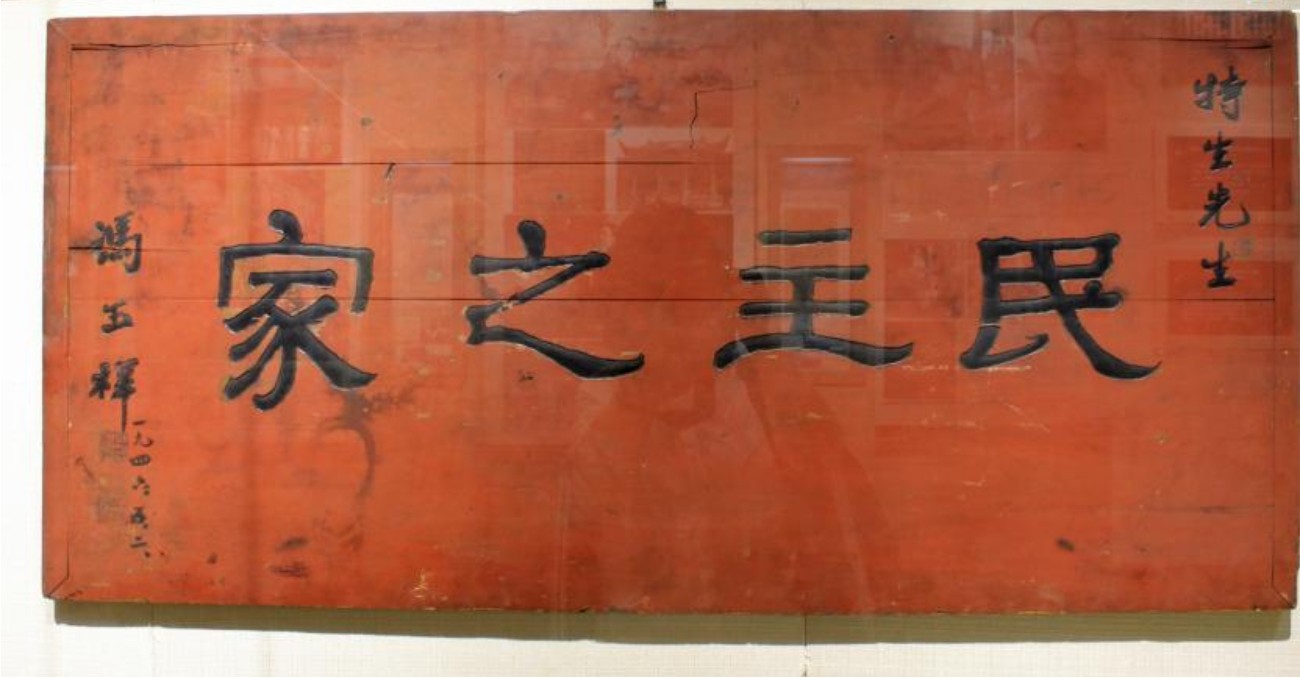 特生先生
民主之家
馮玉祥
一九四六.五.二.